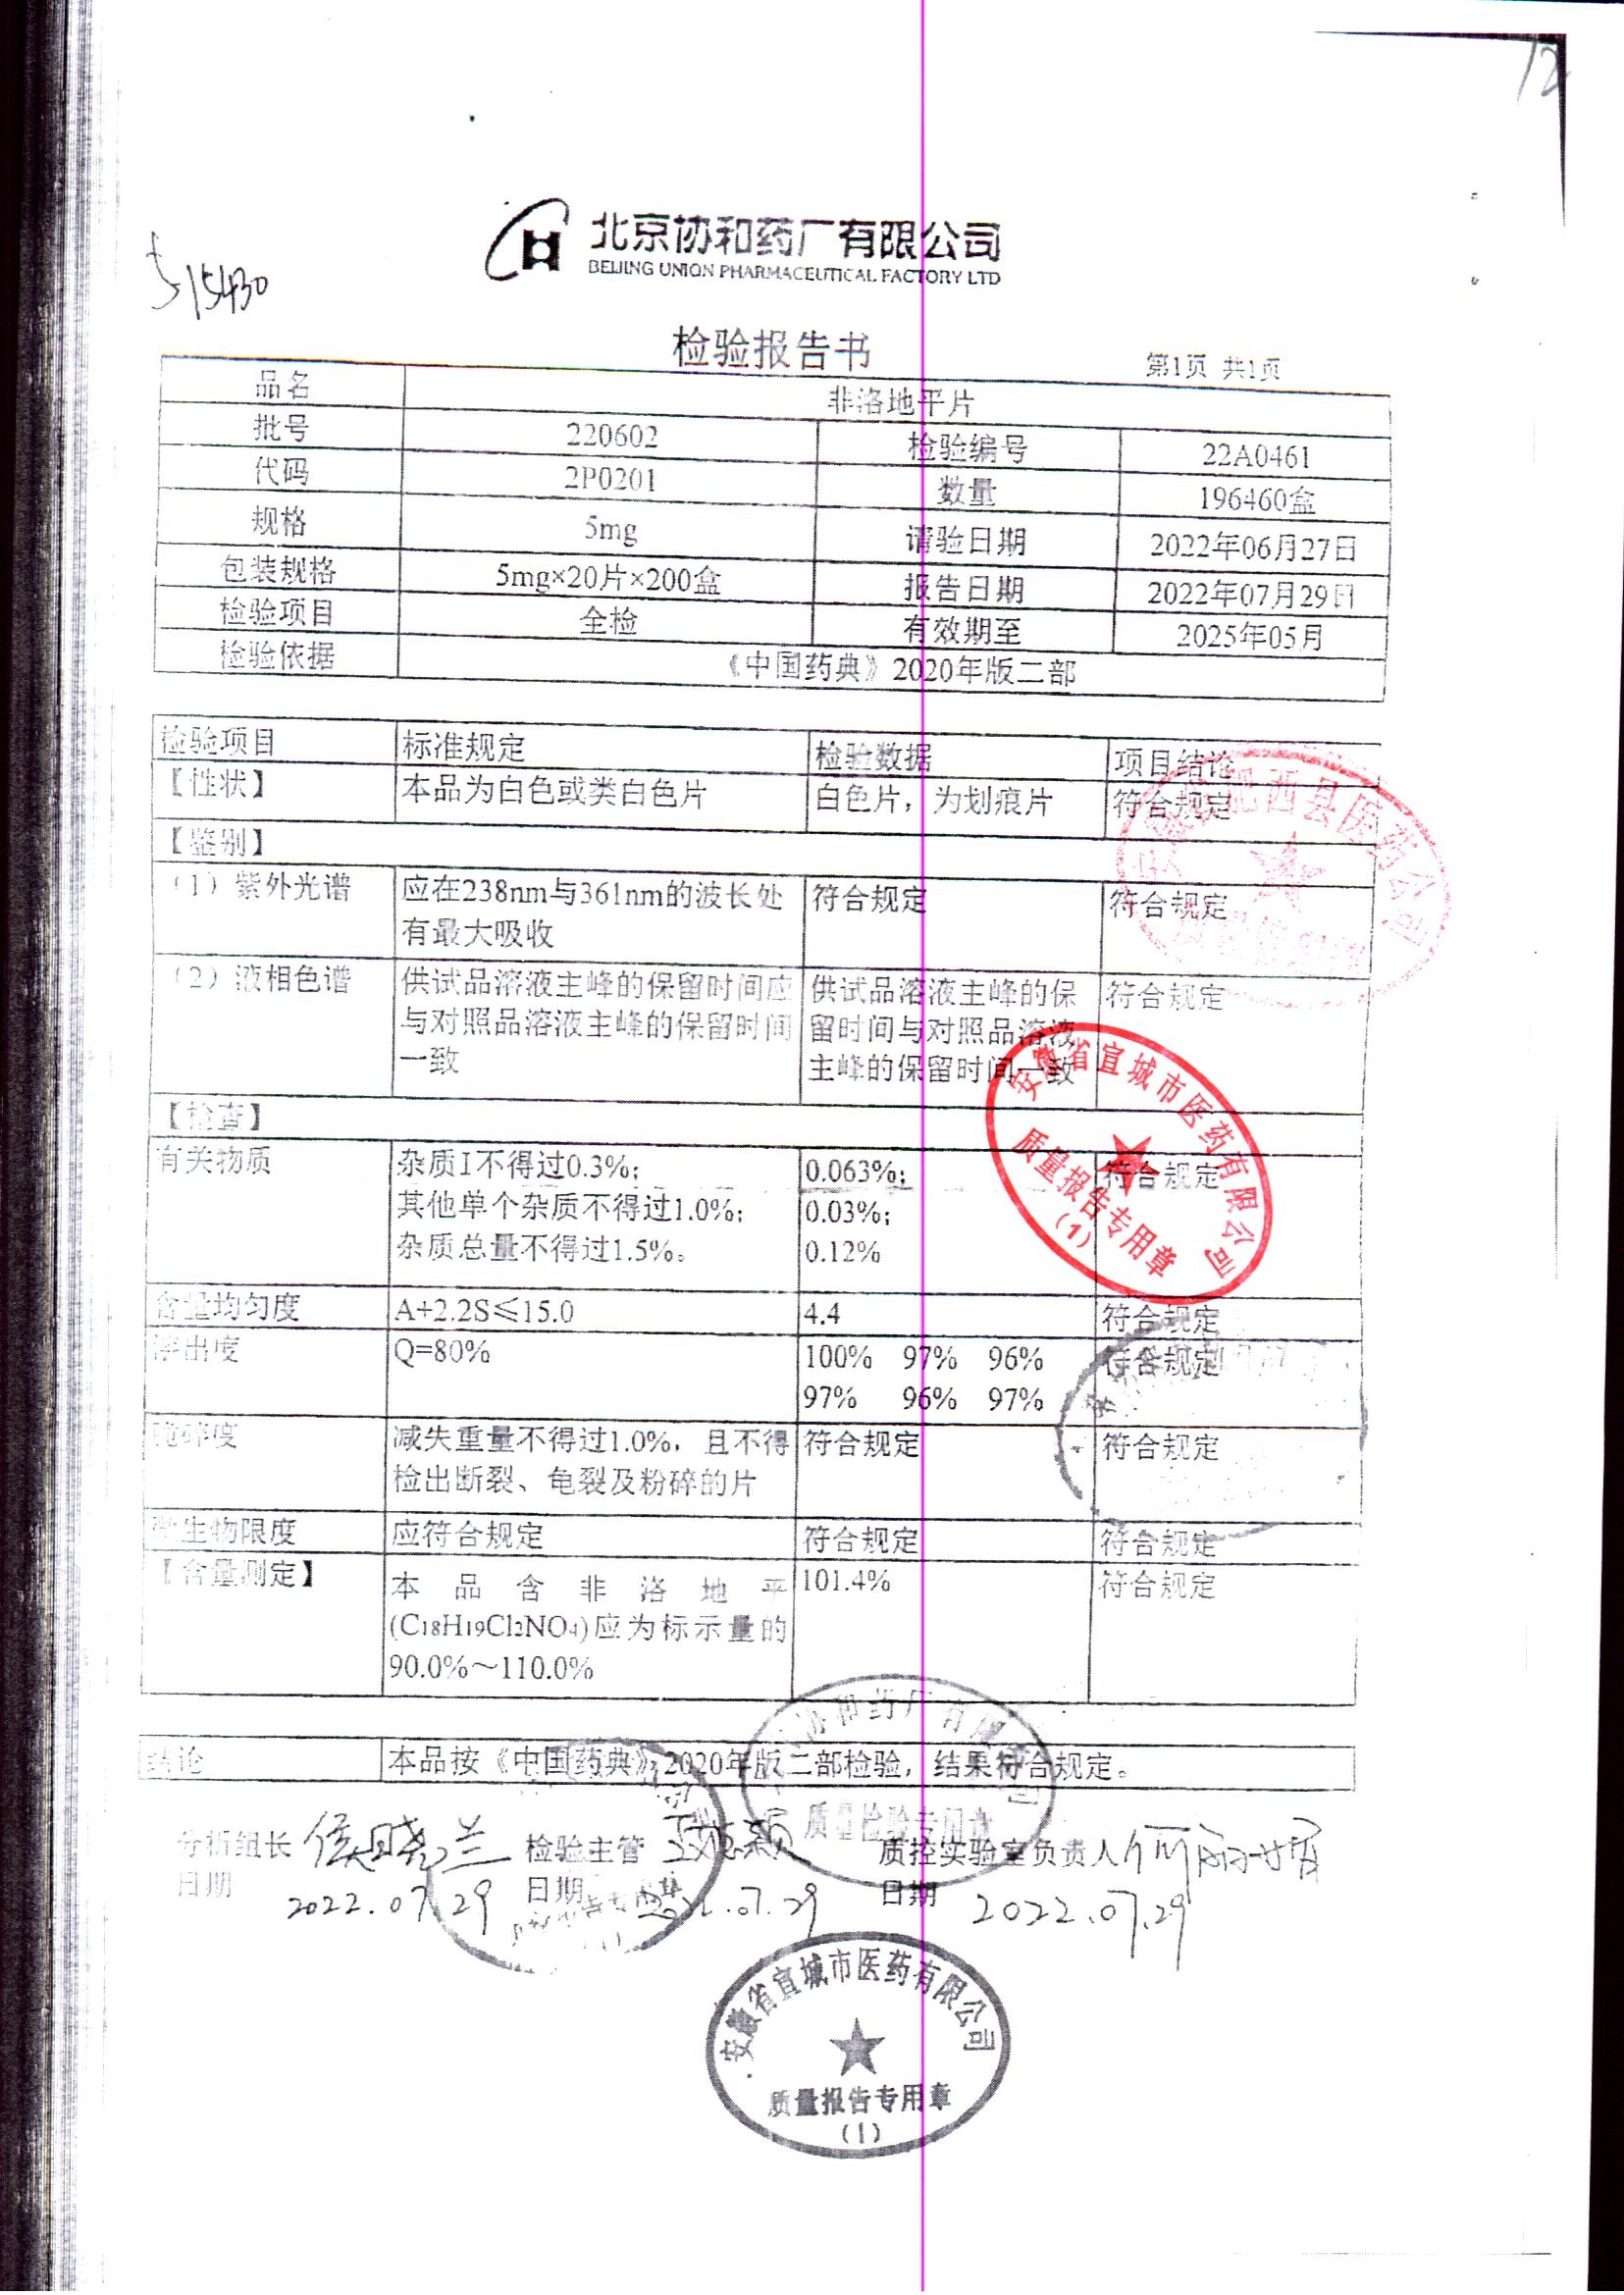 12
北京协和药厂有限公司
BEIJING UNION PHARMACEUTICAL FACTORY LTD
515430
检验报告书
第1页 共1页
品名 非洛地平片
批号 220602 检验编号 22A0461
代码 2P0201 数量 196460盒
规格 5mg 请验日期 2022年06月27日
包装规格 5mg×20片×200盒 报告日期 2022年07月29日
检验项目 全检 有效期至 2025年05月
检验依据 《中国药典》2020年版二部
检验项目 标准规定 检验数据 项目结论
【性状】 本品为白色或类白色片 白色片，为划痕片 符合规定
【鉴别】
（1）紫外光谱 应在238nm与361nm的波长处 符合规定 符合规定
有最大吸收
（2）液相色谱 供试品溶液主峰的保留时间应 供试品溶液主峰的保 符合规定
与对照品溶液主峰的保留时间 留时间与对照品溶液
一致 主峰的保留时间一致
【检查】
有关物质 杂质I不得过0.3%； 0.063%； 符合规定
其他单个杂质不得过1.0%； 0.03%；
杂质总量不得过1.5%。 0.12%
含量均匀度 A+2.2S≤15.0 4.4 符合规定
溶出度 Q=80% 100% 97% 96% 符合规定
97% 96% 97%
脆碎度 减失重量不得过1.0%，且不得 符合规定 符合规定
检出断裂、龟裂及粉碎的片
微生物限度 应符合规定 符合规定 符合规定
【含量测定】 本品含非洛地平 101.4% 符合规定
(C18H19Cl2NO4)应为标示量的
90.0%～110.0%
结论 本品按《中国药典》2020年版二部检验，结果符合规定。
分析组长 侯晓兰 检验主管 质控实验室负责人
日期 2022.07.29 日期 .07.29 日期 2022.07.29
肥西县医药公司
安徽省宣城市医药有限公司
质量报告专用章
(1)
协和药厂有限公司
质量检验专用章
安徽省宣城市医药有限公司
质量报告专用章
(1)